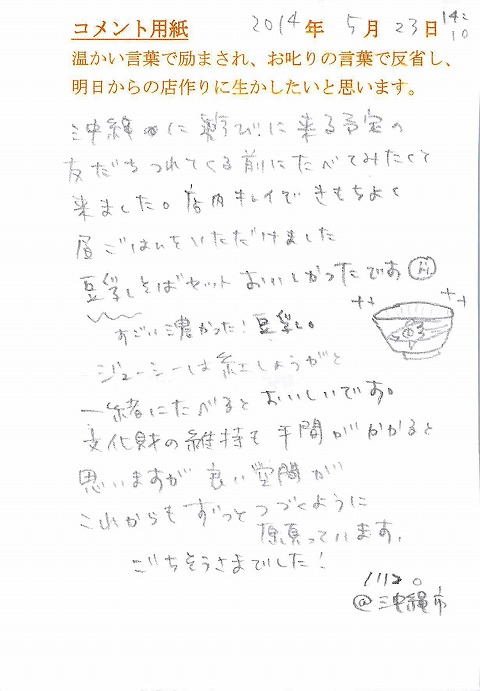 コメント用紙 2014年 5月 23日 14:10
温かい言葉で励まされ、お叱りの言葉で反省し、
明日からの店作りに生かしたいと思います。
沖縄に遊びに来る予定の
友だちつれてくる前にたべてみたくて
来ました。店内キレイできもちよく
昼ごはんをいただけました
豆乳しそばセットおいしかったです
すごい濃かった！豆乳。
ジューシーは紅しょうがと
一緒にたべるとおいしいです。
文化財の維持も手間がかかると
思いますが良い空間が
これからもずっとつづくように
願っています。
ごちそうさまでした！
@沖縄市